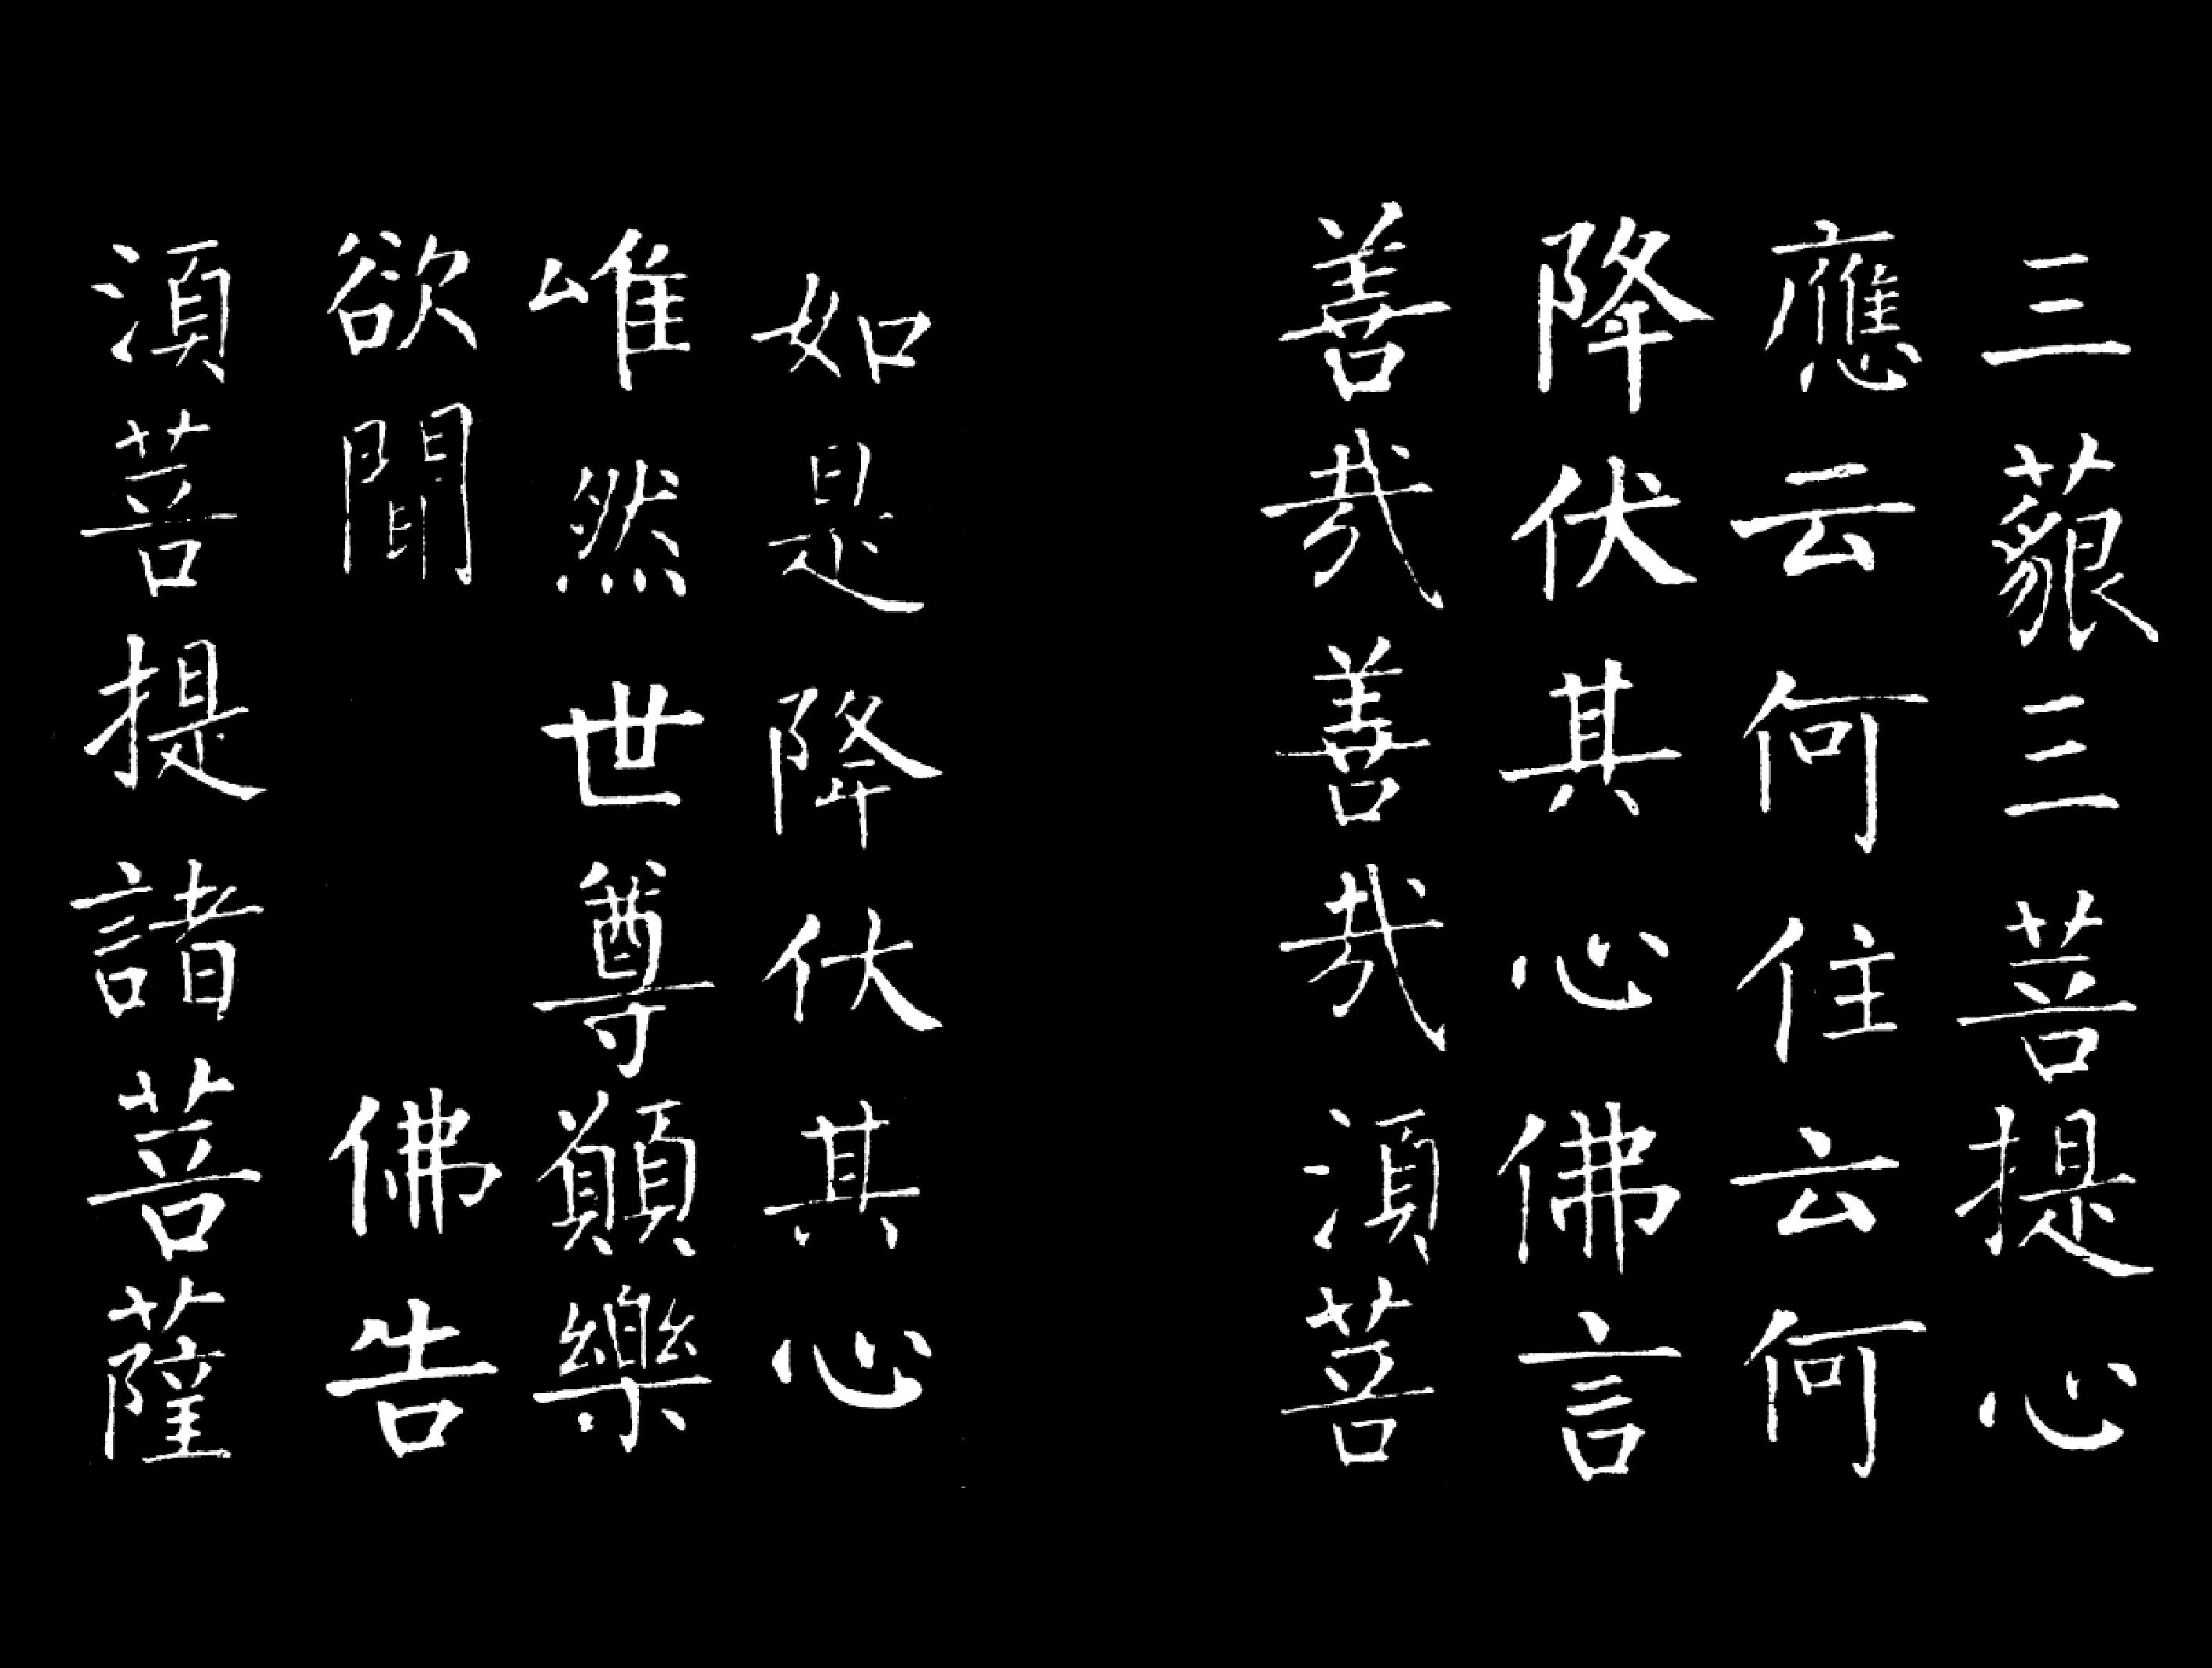 三藐三菩提心
應云何住云何
降伏其心佛言
善哉善哉須菩
如是降伏其心
唯然世尊願樂
欲聞 佛告
須菩提諸菩薩